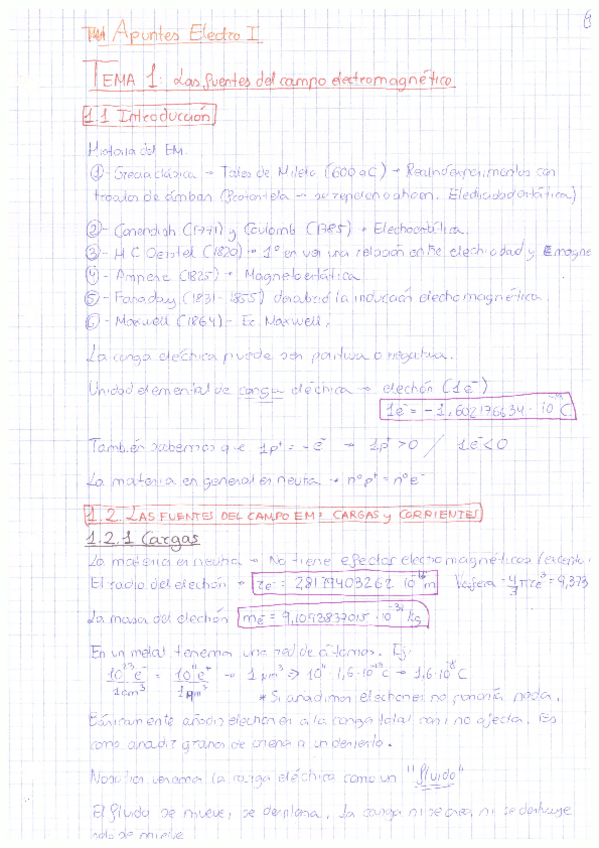 Apuntes Electro I
TEMA 1: Las fuentes del campo electromagnético
1.1 Introducción
Historia del EM.
①- Grecia clásica → Tales de Mileto (600 aC) → Realizó experimentos con
trozos de ámbar (Frotar tela → se repelen o atraen. Electricidad estática)
②- Cavendish (1771) y Coulomb (1785) → Electrostática.
③- H C Oersted (1820) → 1º en ver una relación entre electricidad y magne
④- Ampere (1825) → Magnetostática
⑤- Faraday (1831-1855) descubrió la inducción electromagnética.
⑥- Maxwell (1864) - Ec Maxwell,
La carga eléctrica puede ser positiva o negativa.
Unidad elemental de carga eléctrica → electrón (1e⁻)
1e⁻ = -1,602176634 · 10⁻¹⁹ C
También sabemos que 1p⁺ = -e⁻ → 1p⁺ > 0 / 1e⁻ < 0
La materia en general es neutra → nºp⁺ = nºe⁻
1.2. LAS FUENTES DEL CAMPO EM: CARGAS y CORRIENTES
1.2.1 Cargas
La materia es neutra → No tiene efectos electromagnéticos
El radio del electrón → re⁻ = 2,8179403262 · 10⁻¹⁵ m Vesfera = 4/3 π re³ = 9,373
La masa del electrón me⁻ = 9,1093837015 · 10⁻³¹ kg
En un metal tenemos una red de átomos. Ej:
10²³e⁻/1cm³ = 10¹¹e⁻/1μm³ → 1 μm³ ⇒ 10¹¹ · 1,6·10⁻¹⁹ C → 1,6·10⁻⁸ C
* Si añadimos electrones no pasaría nada.
Básicamente añadir electrones a la carga total casi no afecta. Es
como añadir granos de arena a un desierto.
Nosotros veremos la carga eléctrica como un "fluido"
El fluido se mueve, se desplaza. La carga ni se crea, ni se destruye
solo se mueve